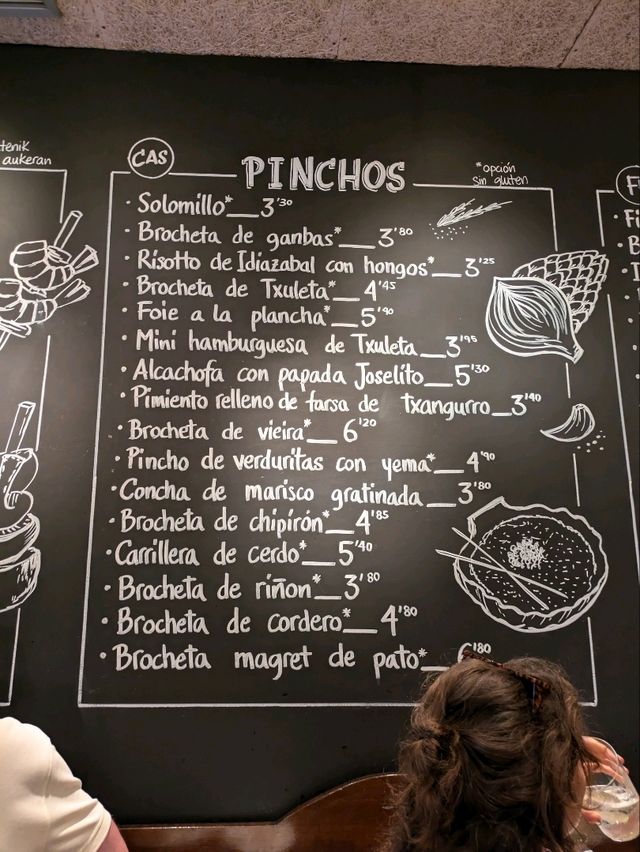 tenik
aukeran
CAS
PINCHOS
*opción
sin gluten
· Solomillo*__3'30
· Brocheta de ganbas*__3'80
· Risotto de Idiazabal con hongos*__3'25
· Brocheta de Txuleta*__4'45
· Foie a la plancha*__5'90
· Mini hamburguesa de Txuleta__3'95
· Alcachofa con papada Joselito__5'30
· Pimiento relleno de farsa de txangurro__3'40
· Brocheta de vieira*__6'20
· Pincho de verduritas con yema*__4'90
· Concha de marisco gratinada__3'80
· Brocheta de chipirón*__4'85
· Carrillera de cerdo*__5'40
· Brocheta de riñon*__3'80
· Brocheta de cordero*__4'80
· Brocheta magret de pato*__6'80